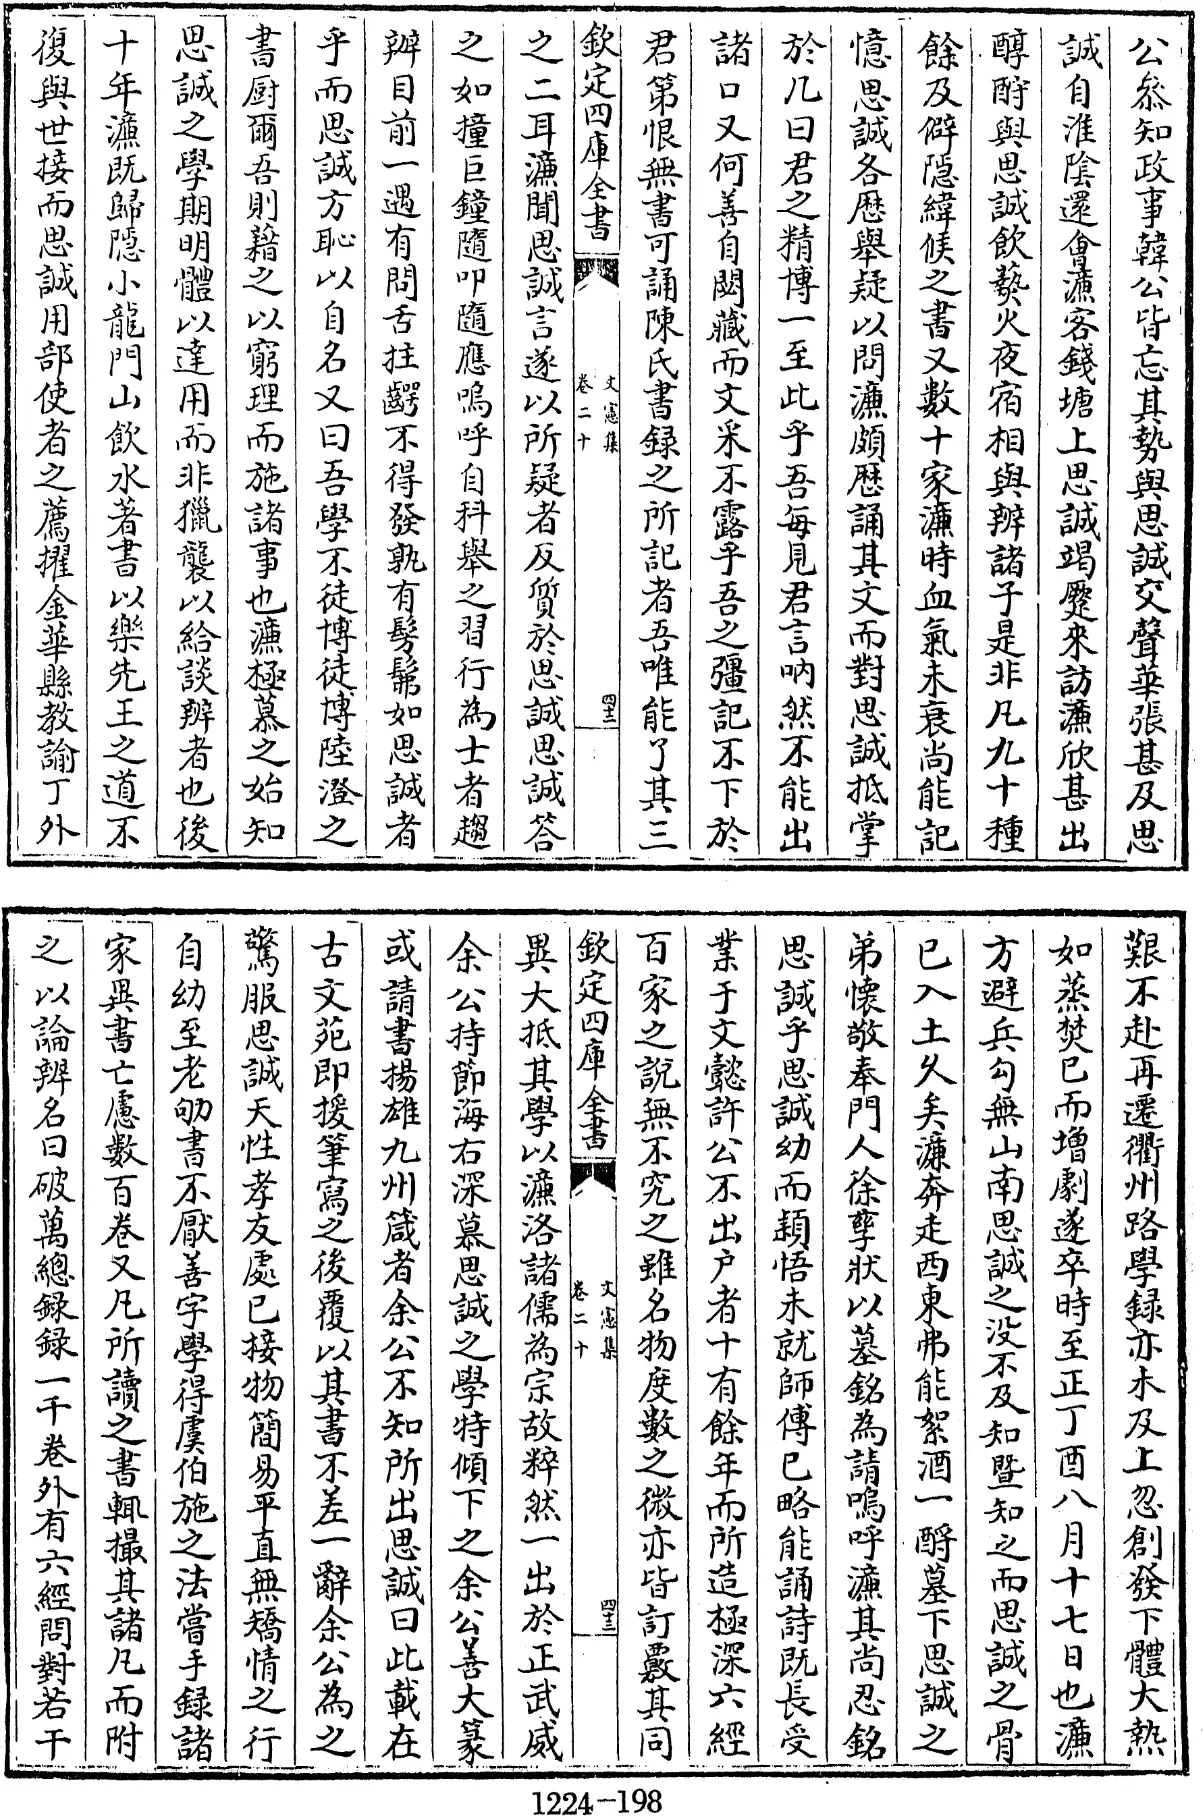 公叅知政事韓公皆忘其勢與思誠交聲華張甚及思
誠自淮陰還會濂客錢塘上思誠竭蹷來訪濂欣甚出
醇酎與思誠飲爇火夜宿相與辨諸子是非凡九十種
餘及僻隱緯候之書又數十家濂時血氣未衰尚能記
憶思誠各歴舉疑以問濂頗歴誦其文而對思誠抵掌
於几曰君之精博一至此乎吾每見君言吶然不能出
諸口又何善自閟藏而文采不露乎吾之彊記不下於
君第恨無書可誦陳氏書録之所記者吾唯能了其三
欽定四庫全書
文憲集
卷二十
四十三
之二耳濂聞思誠言遂以所疑者反質於思誠思誠答
之如撞巨鐘隨叩隨應嗚呼自科舉之習行為士者趨
辨目前一遇有問舌拄齶不得發孰有髣髴如思誠者
乎而思誠方恥以自名又曰吾學不徒博徒博陸澄之
書厨爾吾則藉之以窮理而施諸事也濂極慕之始知
思誠之學期明體以達用而非獵襲以給談辨者也後
十年濂既歸隱小龍門山飲水著書以樂先王之道不
復與世接而思誠用部使者之薦擢金華縣教諭丁外
艱不赴再遷衢州路學録亦未及上忽創發下體大熱
如蒸焚已而増劇遂卒時至正丁酉八月十七日也濂
方避兵勾無山南思誠之没不及知暨知之而思誠之骨
已入土久矣濂奔走西東弗能絮酒一酹墓下思誠之
弟懐敬奉門人徐孳狀以墓銘為請嗚呼濂其尚忍銘
思誠乎思誠幼而穎悟未就師傅已略能誦詩既長受
業于文懿許公不出户者十有餘年而所造極深六經
百家之說無不究之雖名物度數之微亦皆訂覈其同
欽定四庫全書
文憲集
卷二十
四十三
異大抵其學以濂洛諸儒為宗故粹然一出於正武威
余公持節海右深慕思誠之學特傾下之余公善大篆
或請書揚雄九州箴者余公不知所出思誠曰此載在
古文苑即援筆寫之後覆以其書不差一辭余公為之
驚服思誠天性孝友處已接物簡易平直無矯情之行
自幼至老劬書不厭善字學得虞伯施之法嘗手録諸
家異書亡慮數百卷又凡所讀之書輒撮其諸凡而附
之以論辨名曰破萬總録録一千卷外有六經問對若干
1224-198